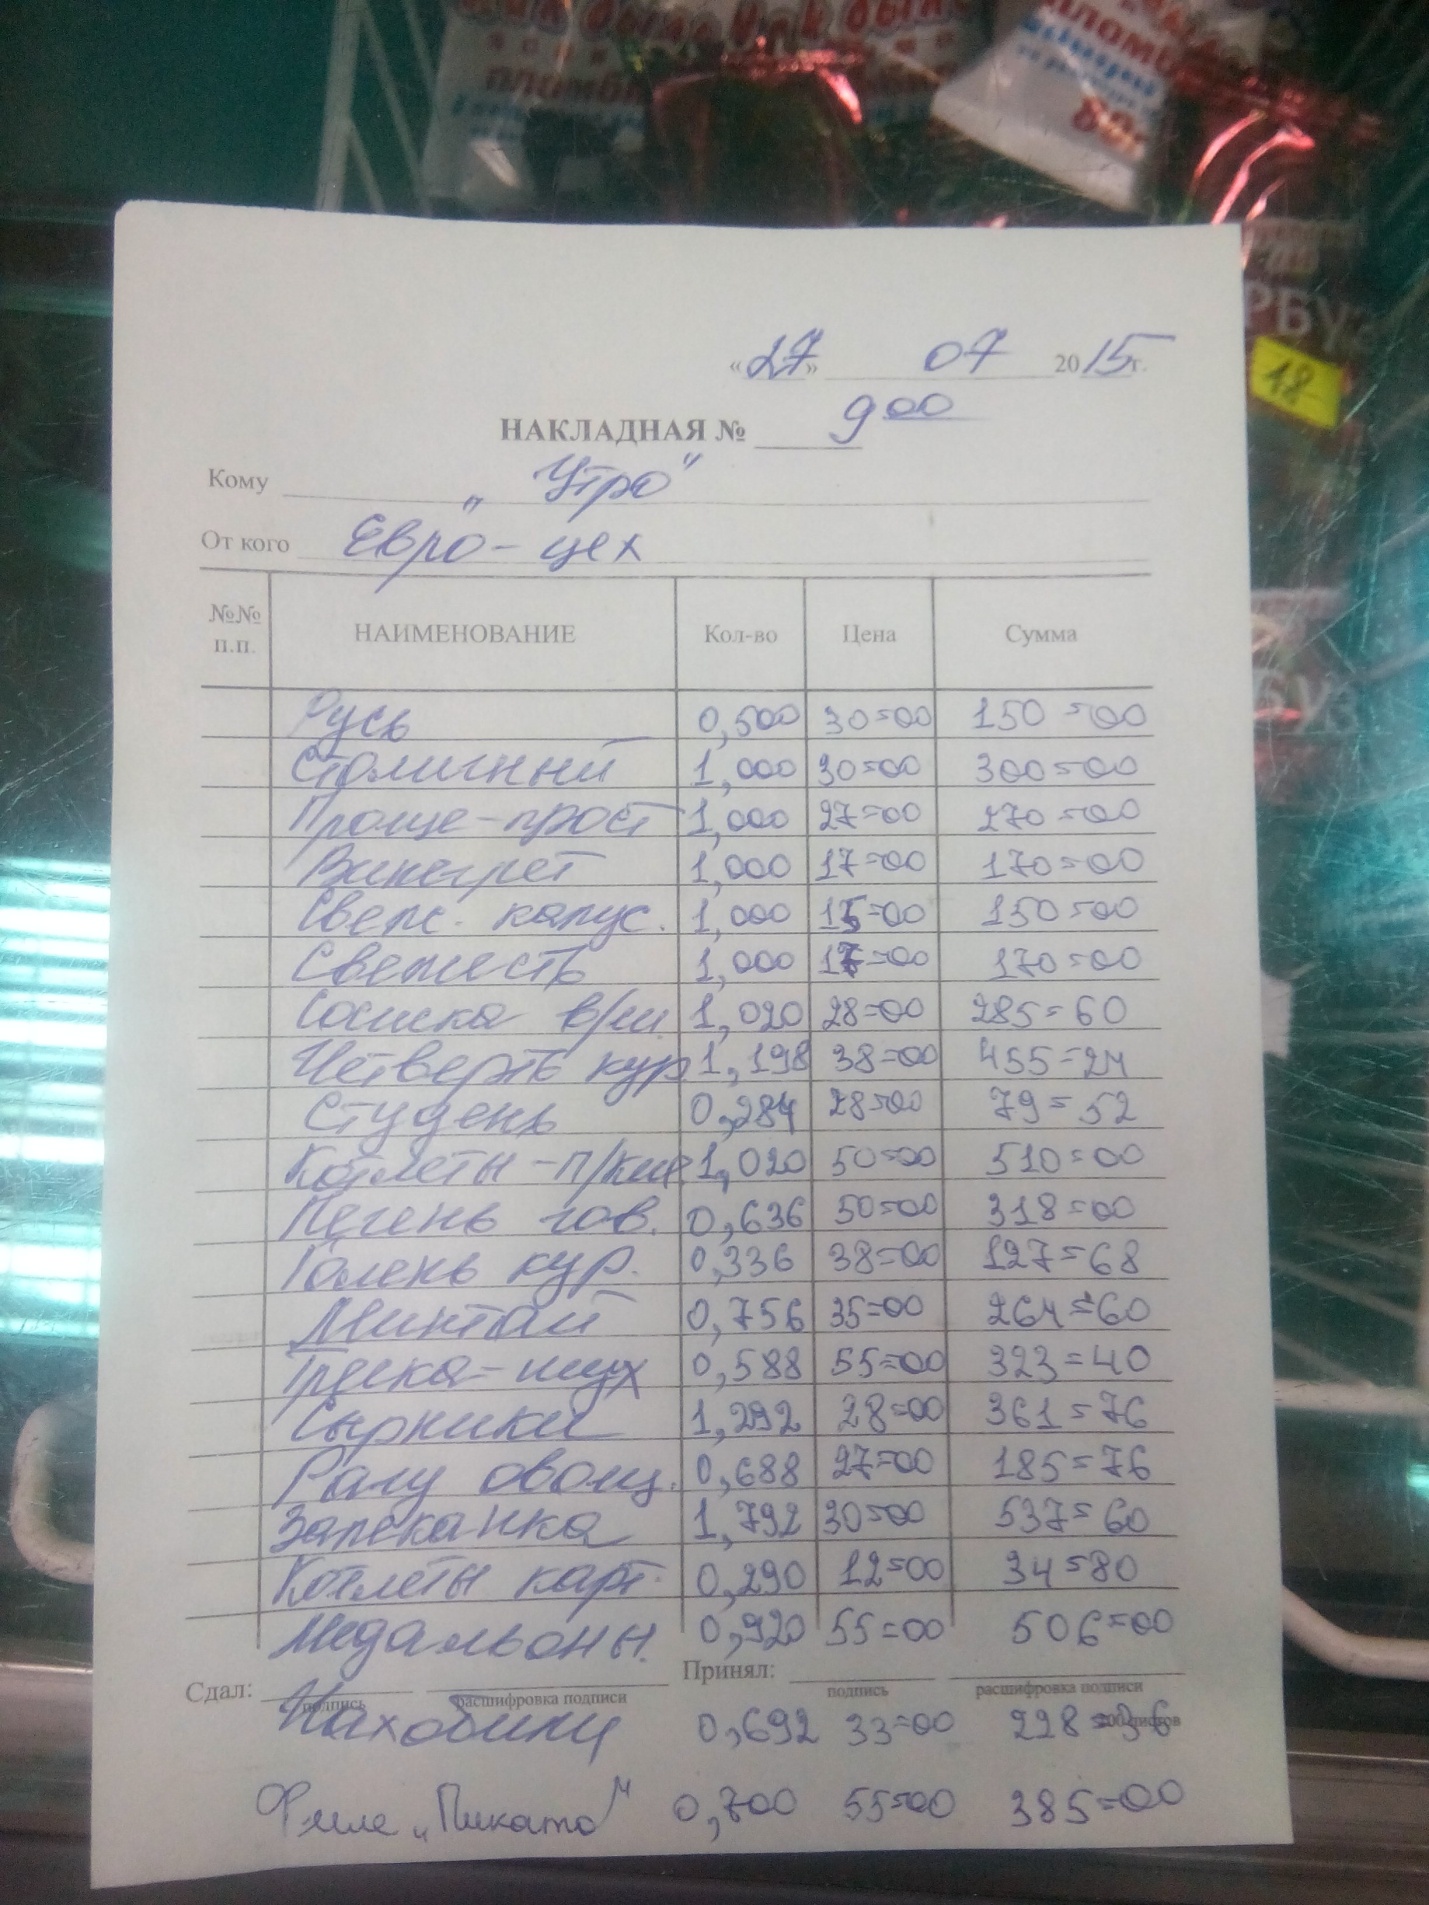 пломбир
80-
РБУЗ
18-
«27» 07 2015г.
НАКЛАДНАЯ № 9 00
Кому „Утро"
От кого Евро-цех
№№ п.п. НАИМЕНОВАНИЕ Кол-во Цена Сумма
Русь 0,500 30=00 150=00
Столичный 1,000 30=00 300=00
Проще-прост 1,000 27=00 270=00
Винегрет 1,000 17=00 170=00
Свеж. капус. 1,000 15=00 150=00
Свежесть 1,000 17=00 170=00
Сосиска 1,020 28=00 285=60
Четверть кур 1,198 38=00 455=24
Студень 0,284 28=00 79=52
Котлеты-п/киев 1,020 50=00 510=00
Печень гов. 0,636 50=00 318=00
Голень кур. 0,336 38=00 127=68
Минтай 0,756 35=00 264=60
Треска- 0,588 55=00 323=40
Сырники 1,292 28=00 361=76
Рагу овощ. 0,688 27=00 185=76
Запеканка 1,792 30=00 537=60
Котлеты карт. 0,290 12=00 34=80
Медальоны. 0,920 55=00 506=00
Сдал: подпись расшифровка подписи Принял: подпись расшифровка подписи
0,692 33=00 228=36
Филе „Пикато" 0,700 55=00 385=00